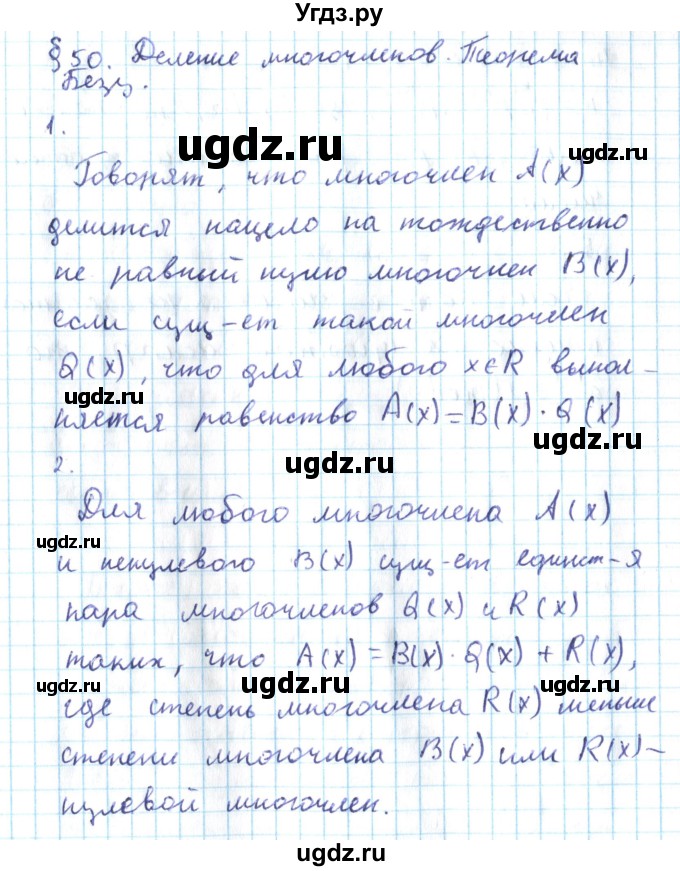 Угдз.ру
§ 50. Деление многочленов. Теорема
Безу.
1.
ugdz.ru ugdz.ru
Говорят, что многочлен A(x)
делится нацело на тождественно
не равный нулю многочлен B(x),
ugdz.ru
если сущ-ет такой многочлен
Q(x), что для любого x∈R выпол-
ugdz.ru
няется равенство A(x) = B(x) · Q(x)
ugdz.ru ugdz.ru
2.
Для любого многочлена A(x)
ugdz.ru ugdz.ru
и ненулевого B(x) сущ-ет единст-я
пара многочленов Q(x) и R(x)
таких, что A(x) = B(x) · Q(x) + R(x),
ugdz.ru ugdz.ru ugdz.ru
где степень многочлена R(x) меньше
степени многочлена B(x) или R(x) –
нулевой многочлен.
ugdz.ru